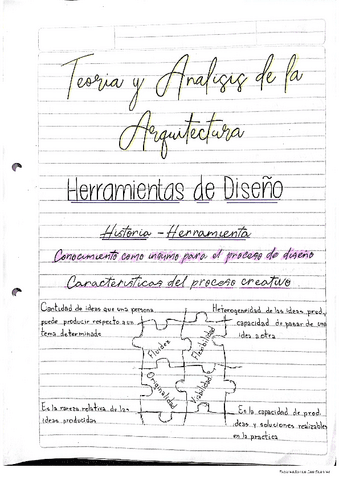 Teoria y Analisis de la
Arquitectura
Herramientas de Diseño
Historia - Herramienta
Conocimiento como insumo para el proceso de diseño
Caracteristicas del proceso creativo
Cantidad de ideas que una persona
puede producir respecto a un
tema determinado
Heterogeneidad de las ideas prod,
capacidad de pasar de una
idea a otra
Fluidez
Flexibilidad
Originalidad
Viabilidad
Es la rareza relativa de las
ideas producidas
Es la capacidad de prod.
ideas y soluciones realizables
en la practica